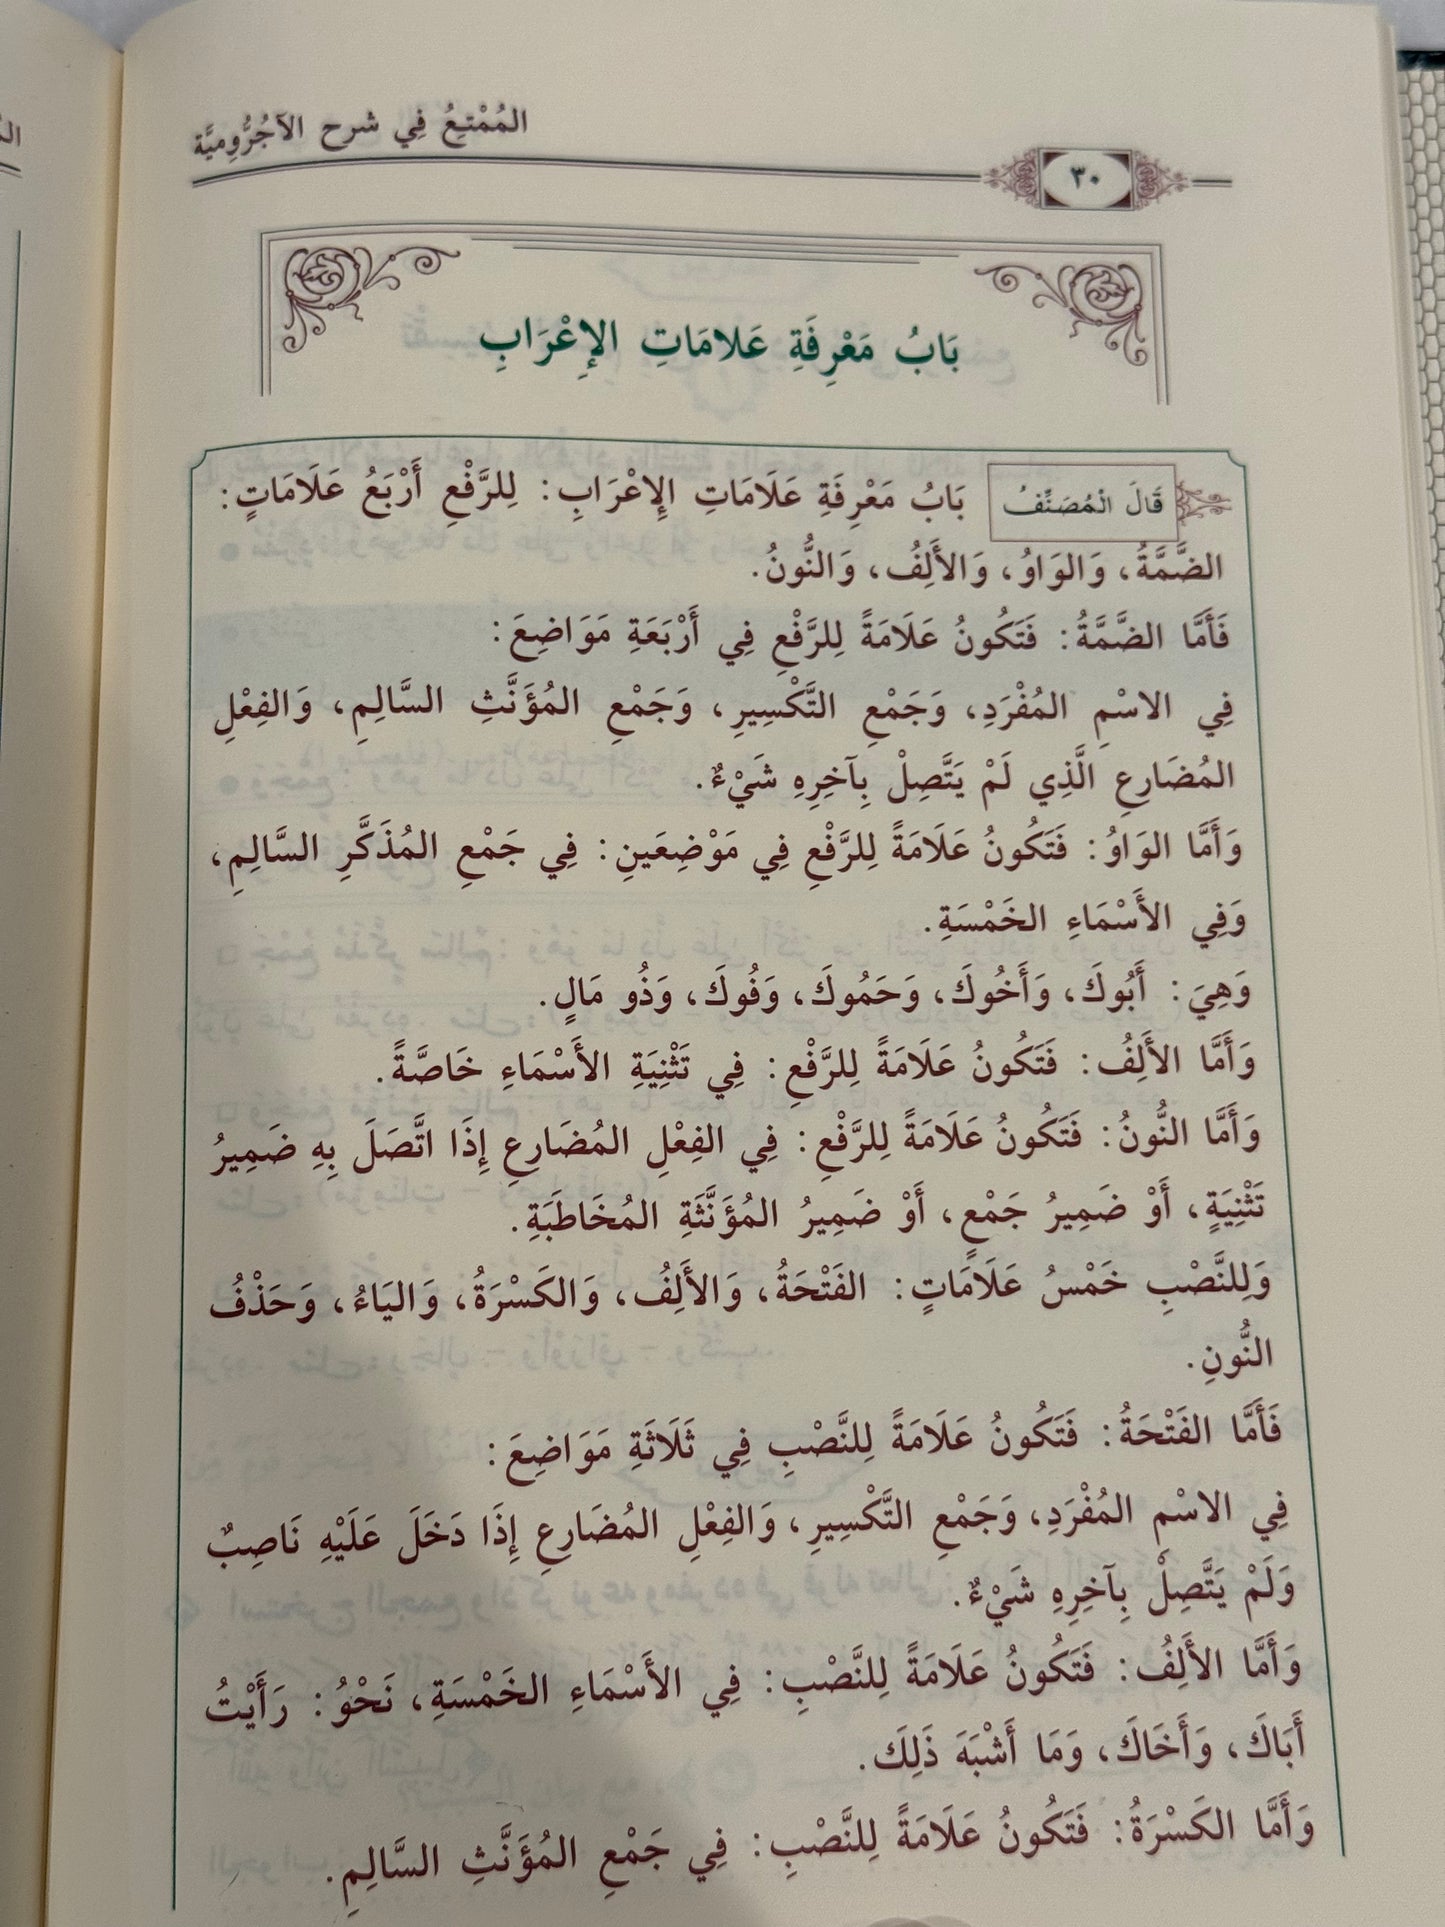 المُمْتِعُ فِي شرح الآجُرُّومِيَّة
٣٠
بَابُ مَعْرِفَةِ عَلامَاتِ الإِعْرَابِ
قَالَ الْمُصَنِّفُ بَابُ مَعْرِفَةِ عَلَامَاتِ الإِعْرَابِ: لِلرَّفْعِ أَرْبَعُ عَلَامَاتٍ:
الضَّمَّةُ، وَالوَاوُ، وَالأَلِفُ، وَالنُّونُ.
فَأَمَّا الضَّمَّةُ: فَتَكُونُ عَلَامَةً لِلرَّفْعِ فِي أَرْبَعَةِ مَوَاضِعَ:
فِي الاسْمِ المُفْرَدِ، وَجَمْعِ التَّكْسِيرِ، وَجَمْعِ المُؤَنَّثِ السَّالِمِ، وَالفِعْلِ
المُضَارِعِ الَّذِي لَمْ يَتَّصِلْ بِآخِرِهِ شَيْءٌ.
وَأَمَّا الوَاوُ: فَتَكُونُ عَلَامَةً لِلرَّفْعِ فِي مَوْضِعَينِ: فِي جَمْعِ المُذَكَّرِ السَّالِمِ،
وَفِي الأَسْمَاءِ الخَمْسَةِ.
وَهِيَ: أَبُوكَ، وَأَخُوكَ، وَحَمُوكَ، وَفُوكَ، وَذُو مَالٍ.
وَأَمَّا الأَلِفُ: فَتَكُونُ عَلَامَةً لِلرَّفْعِ: فِي تَثْنِيَةِ الأَسْمَاءِ خَاصَّةً.
وَأَمَّا النُّونُ: فَتَكُونُ عَلَامَةً لِلرَّفْعِ: فِي الفِعْلِ المُضَارِعِ إِذَا اتَّصَلَ بِهِ ضَمِيرُ
تَثْنِيَةٍ، أَوْ ضَمِيرُ جَمْعٍ، أَوْ ضَمِيرُ المُؤَنَّثَةِ المُخَاطَبَةِ.
وَلِلنَّصْبِ خَمْسُ عَلَامَاتٍ: الفَتْحَةُ، وَالأَلِفُ، وَالكَسْرَةُ، وَاليَاءُ، وَحَذْفُ
النُّونِ.
فَأَمَّا الفَتْحَةُ: فَتَكُونُ عَلَامَةً لِلنَّصْبِ فِي ثَلَاثَةِ مَوَاضِعَ:
فِي الاسْمِ المُفْرَدِ، وَجَمْعِ التَّكْسِيرِ، وَالفِعْلِ المُضَارِعِ إِذَا دَخَلَ عَلَيْهِ نَاصِبٌ
وَلَمْ يَتَّصِلْ بِآخِرِهِ شَيْءٌ.
وَأَمَّا الأَلِفُ: فَتَكُونُ عَلَامَةً لِلنَّصْبِ: فِي الأَسْمَاءِ الخَمْسَةِ، نَحْوُ: رَأَيْتُ
أَبَاكَ، وَأَخَاكَ، وَمَا أَشْبَهَ ذَلِكَ.
وَأَمَّا الكَسْرَةُ: فَتَكُونُ عَلَامَةً لِلنَّصْبِ: فِي جَمْعِ المُؤَنَّثِ السَّالِمِ.